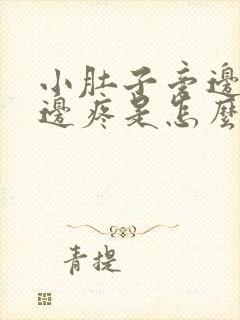 小肚子旁邊
邊疼是怎麼
青提